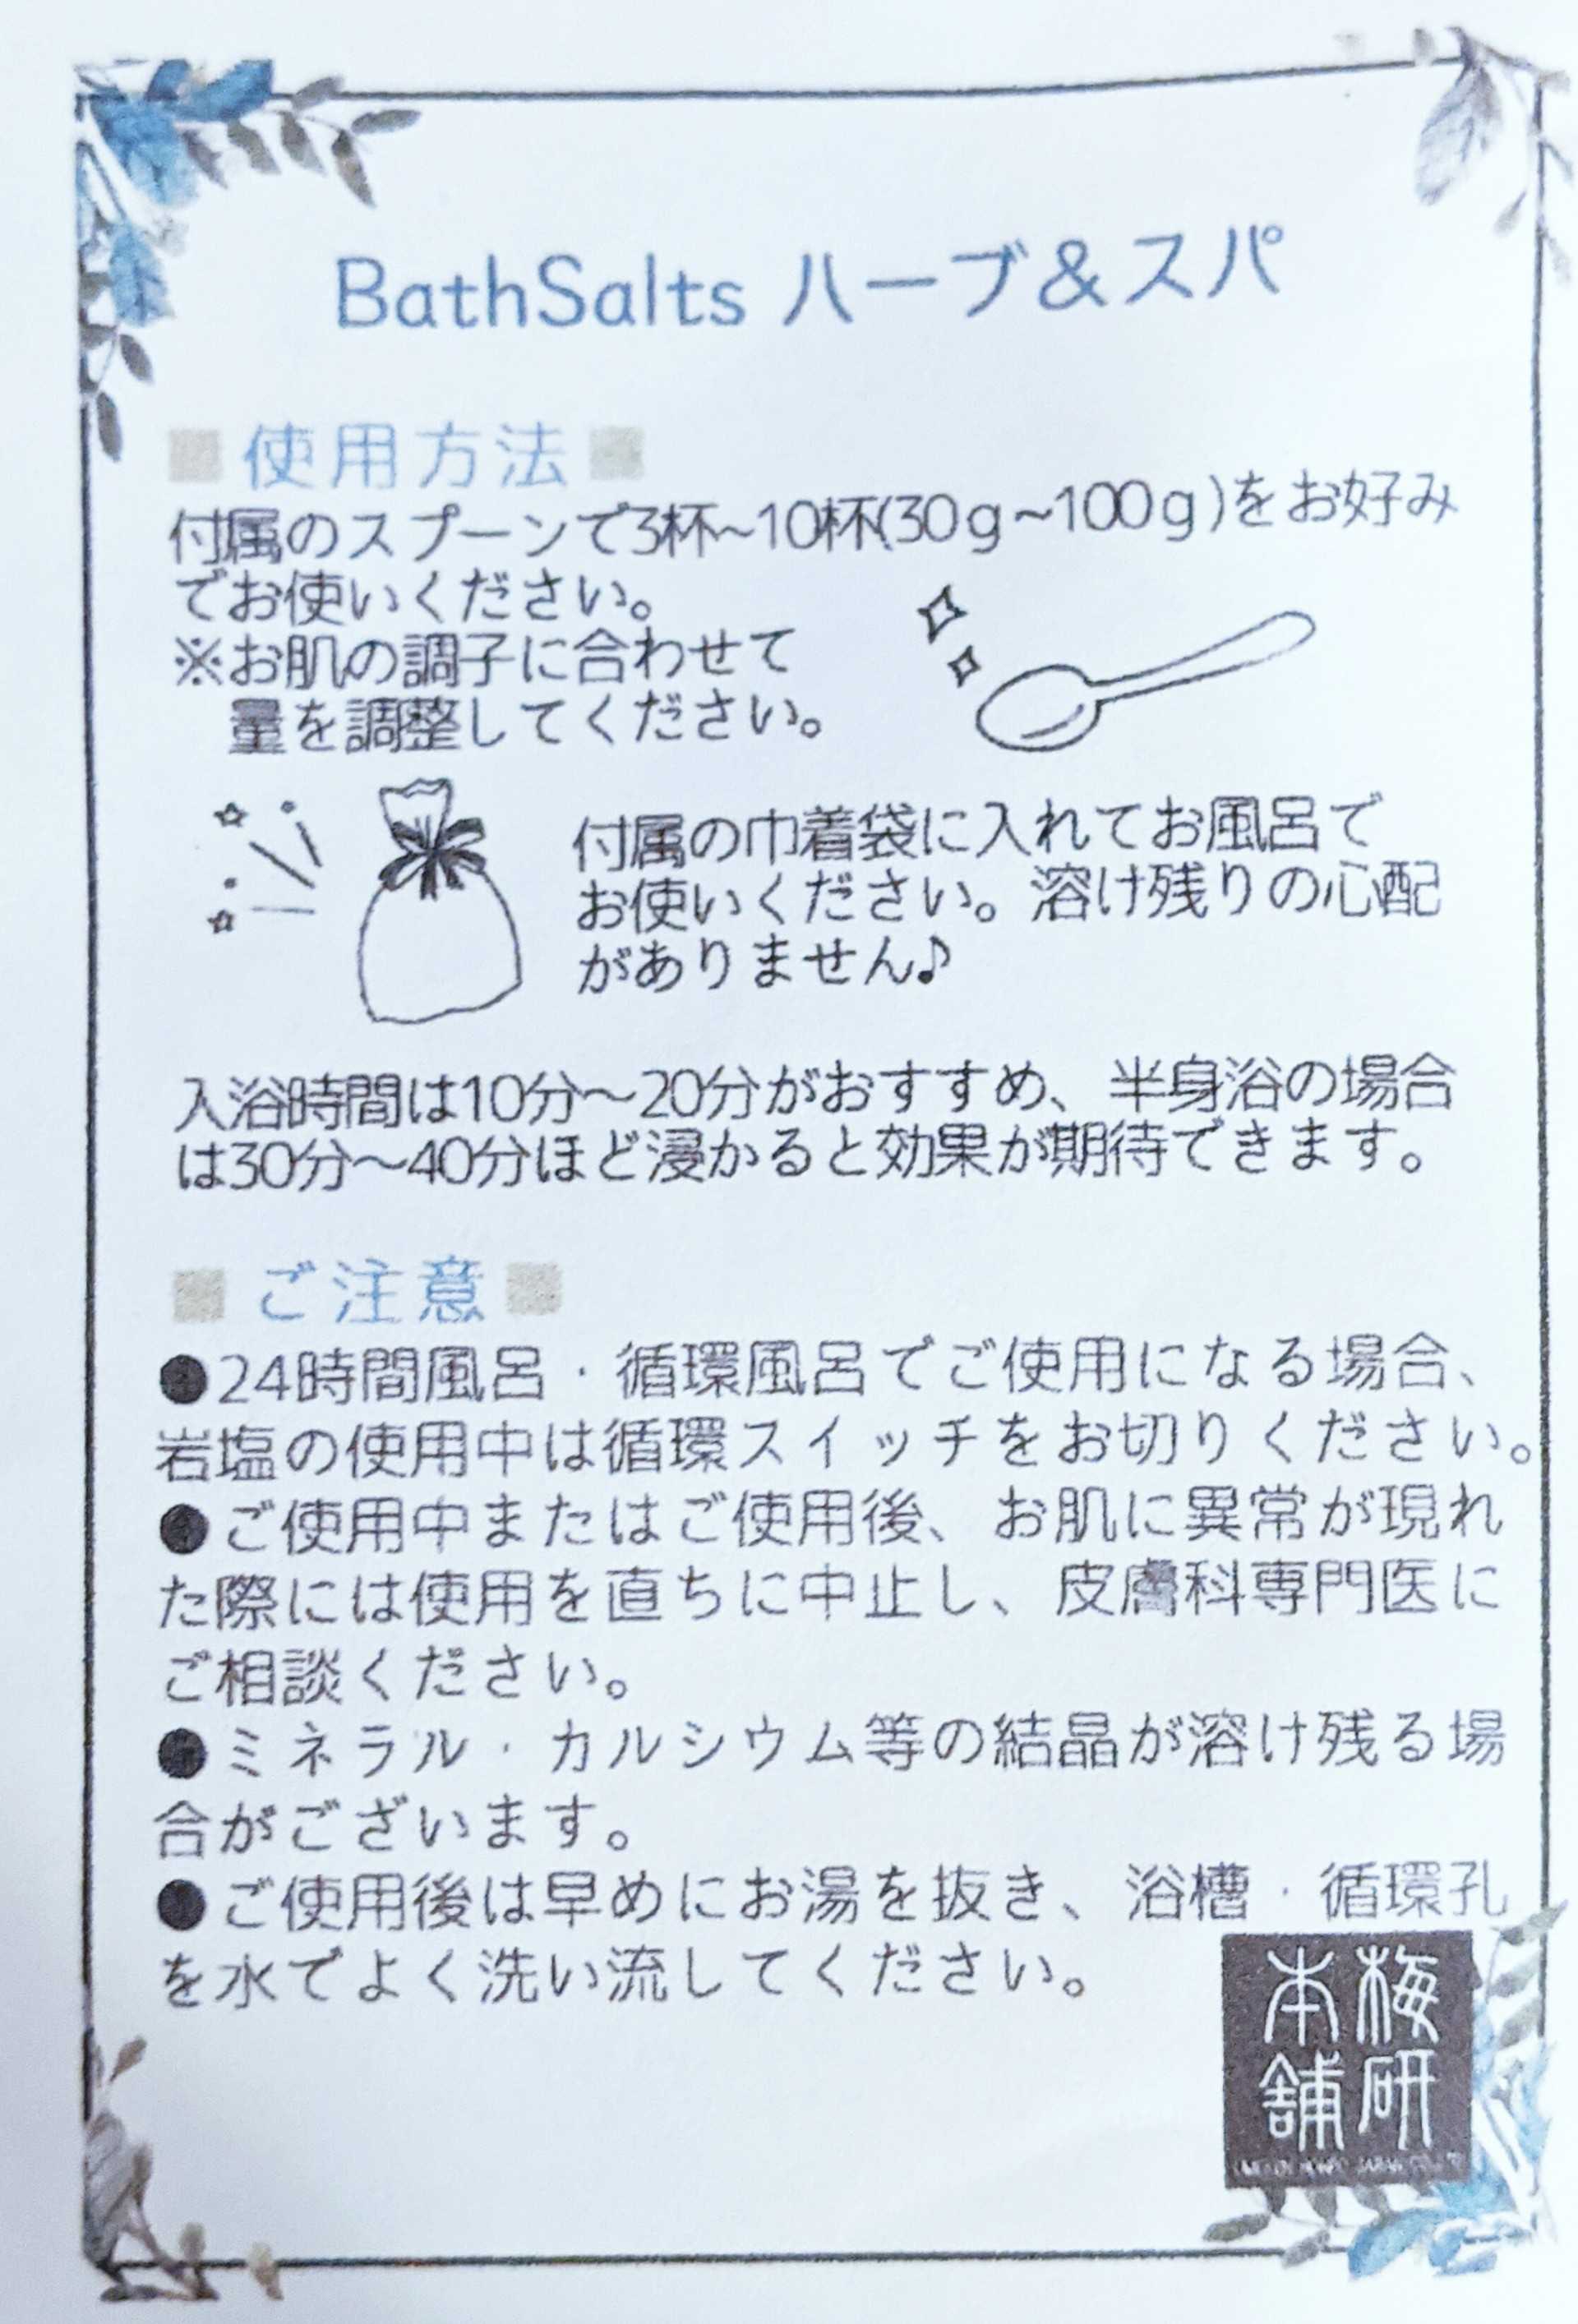 BathSalts ハーブ&スパ
■使用方法■
付属のスプーンで3杯~10杯(30g~100g)をお好み
でお使いください。
※お肌の調子に合わせて
量を調整してください。
付属の巾着袋に入れてお風呂で
お使いください。溶け残りの心配
がありません♪
入浴時間は10分～20分がおすすめ、半身浴の場合
は30分～40分ほど浸かると効果が期待できます。
■ご注意■
●24時間風呂・循環風呂でご使用になる場合、
岩塩の使用中は循環スイッチをお切りください。
●ご使用中またはご使用後、お肌に異常が現れ
た際には使用を直ちに中止し、皮膚科専門医に
ご相談ください。
●ミネラル・カルシウム等の結晶が溶け残る場
合がございます。
●ご使用後は早めにお湯を抜き、浴槽・循環孔
を水でよく洗い流してください。
梅研
本舗